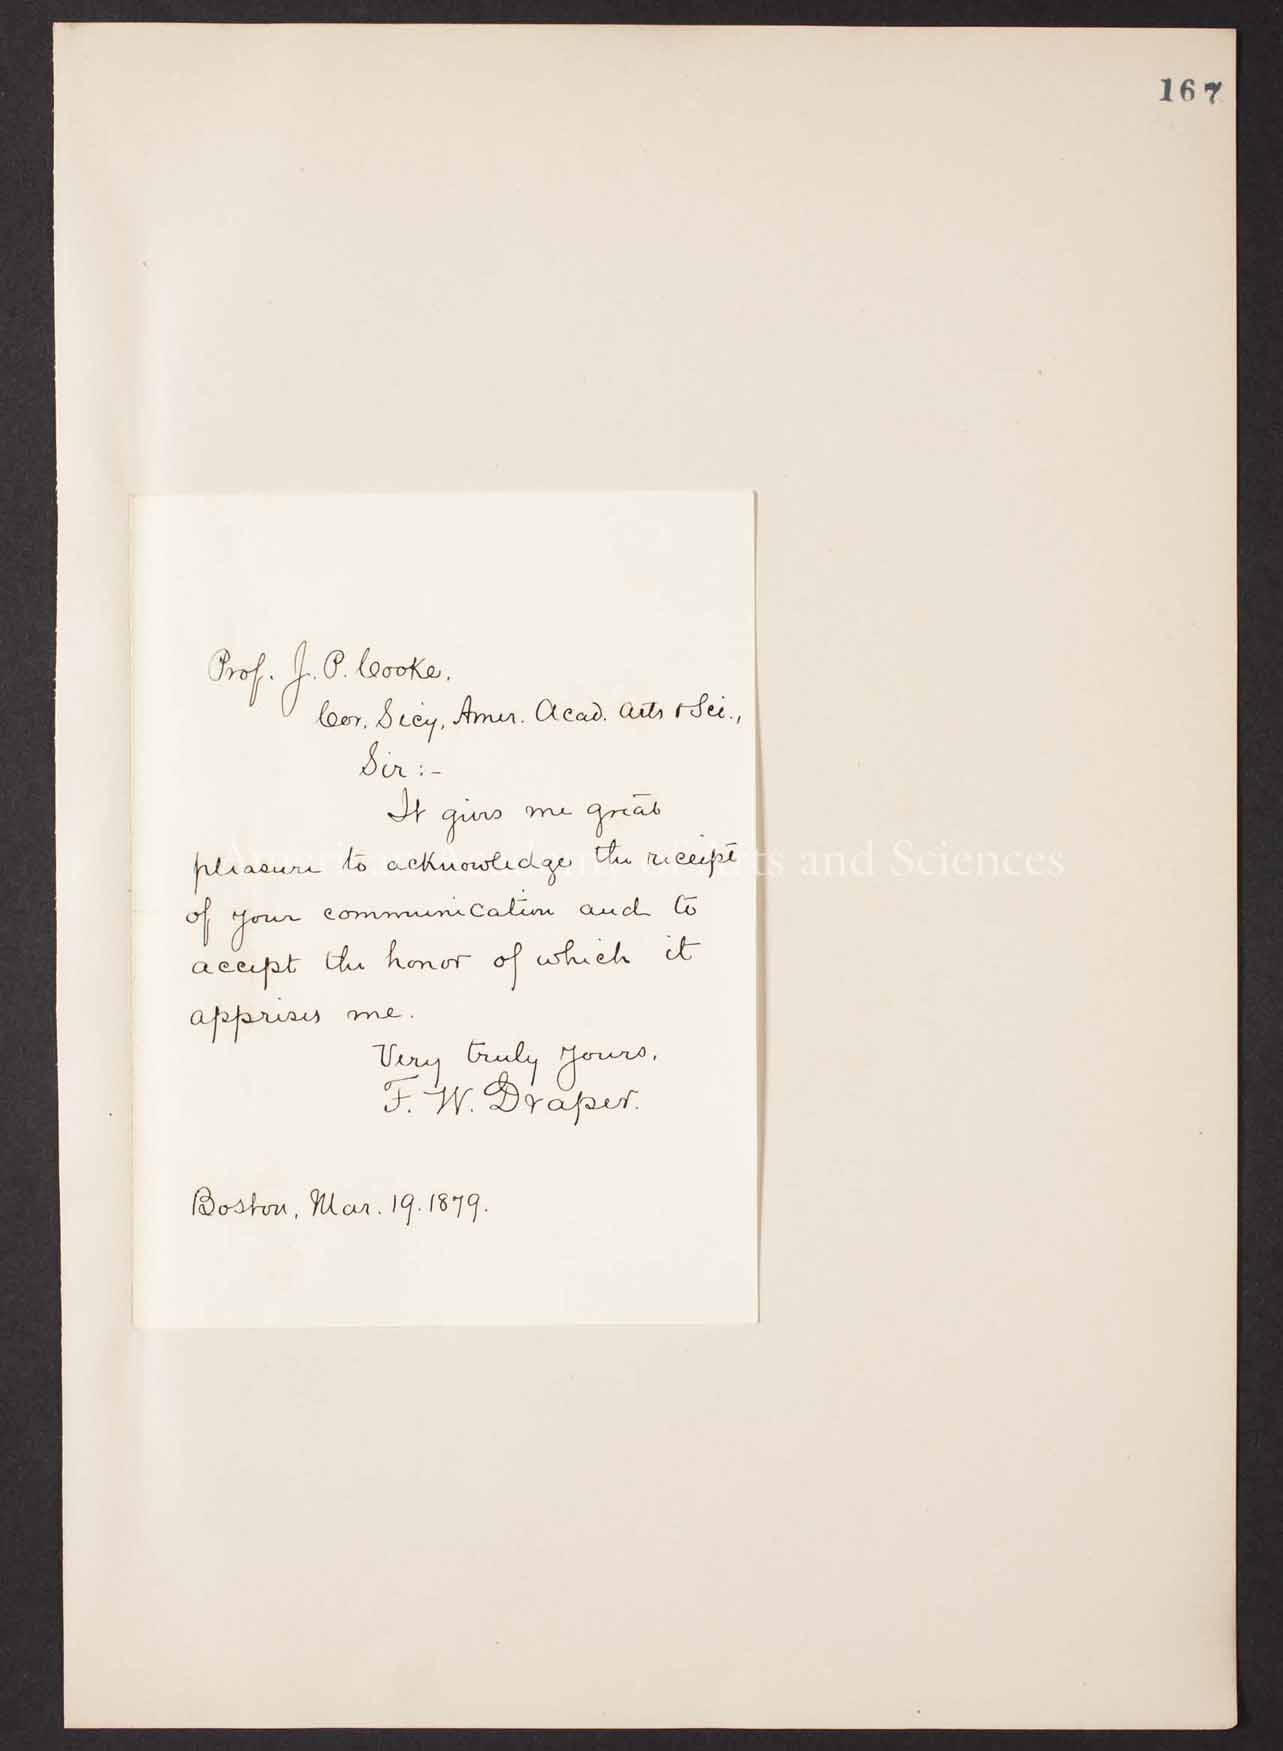 167
Prof. J. P. Cooke,
Cor. Secy, Amer. Acad. Arts & Sci.,
Sir :-
It gives me great
pleasure to acknowledge the receipt
of your communication and to
accept the honor of which it
apprises me.
Very truly yours,
F. W. Draper.
Boston, Mar. 19. 1879.
American Academy of Arts and Sciences